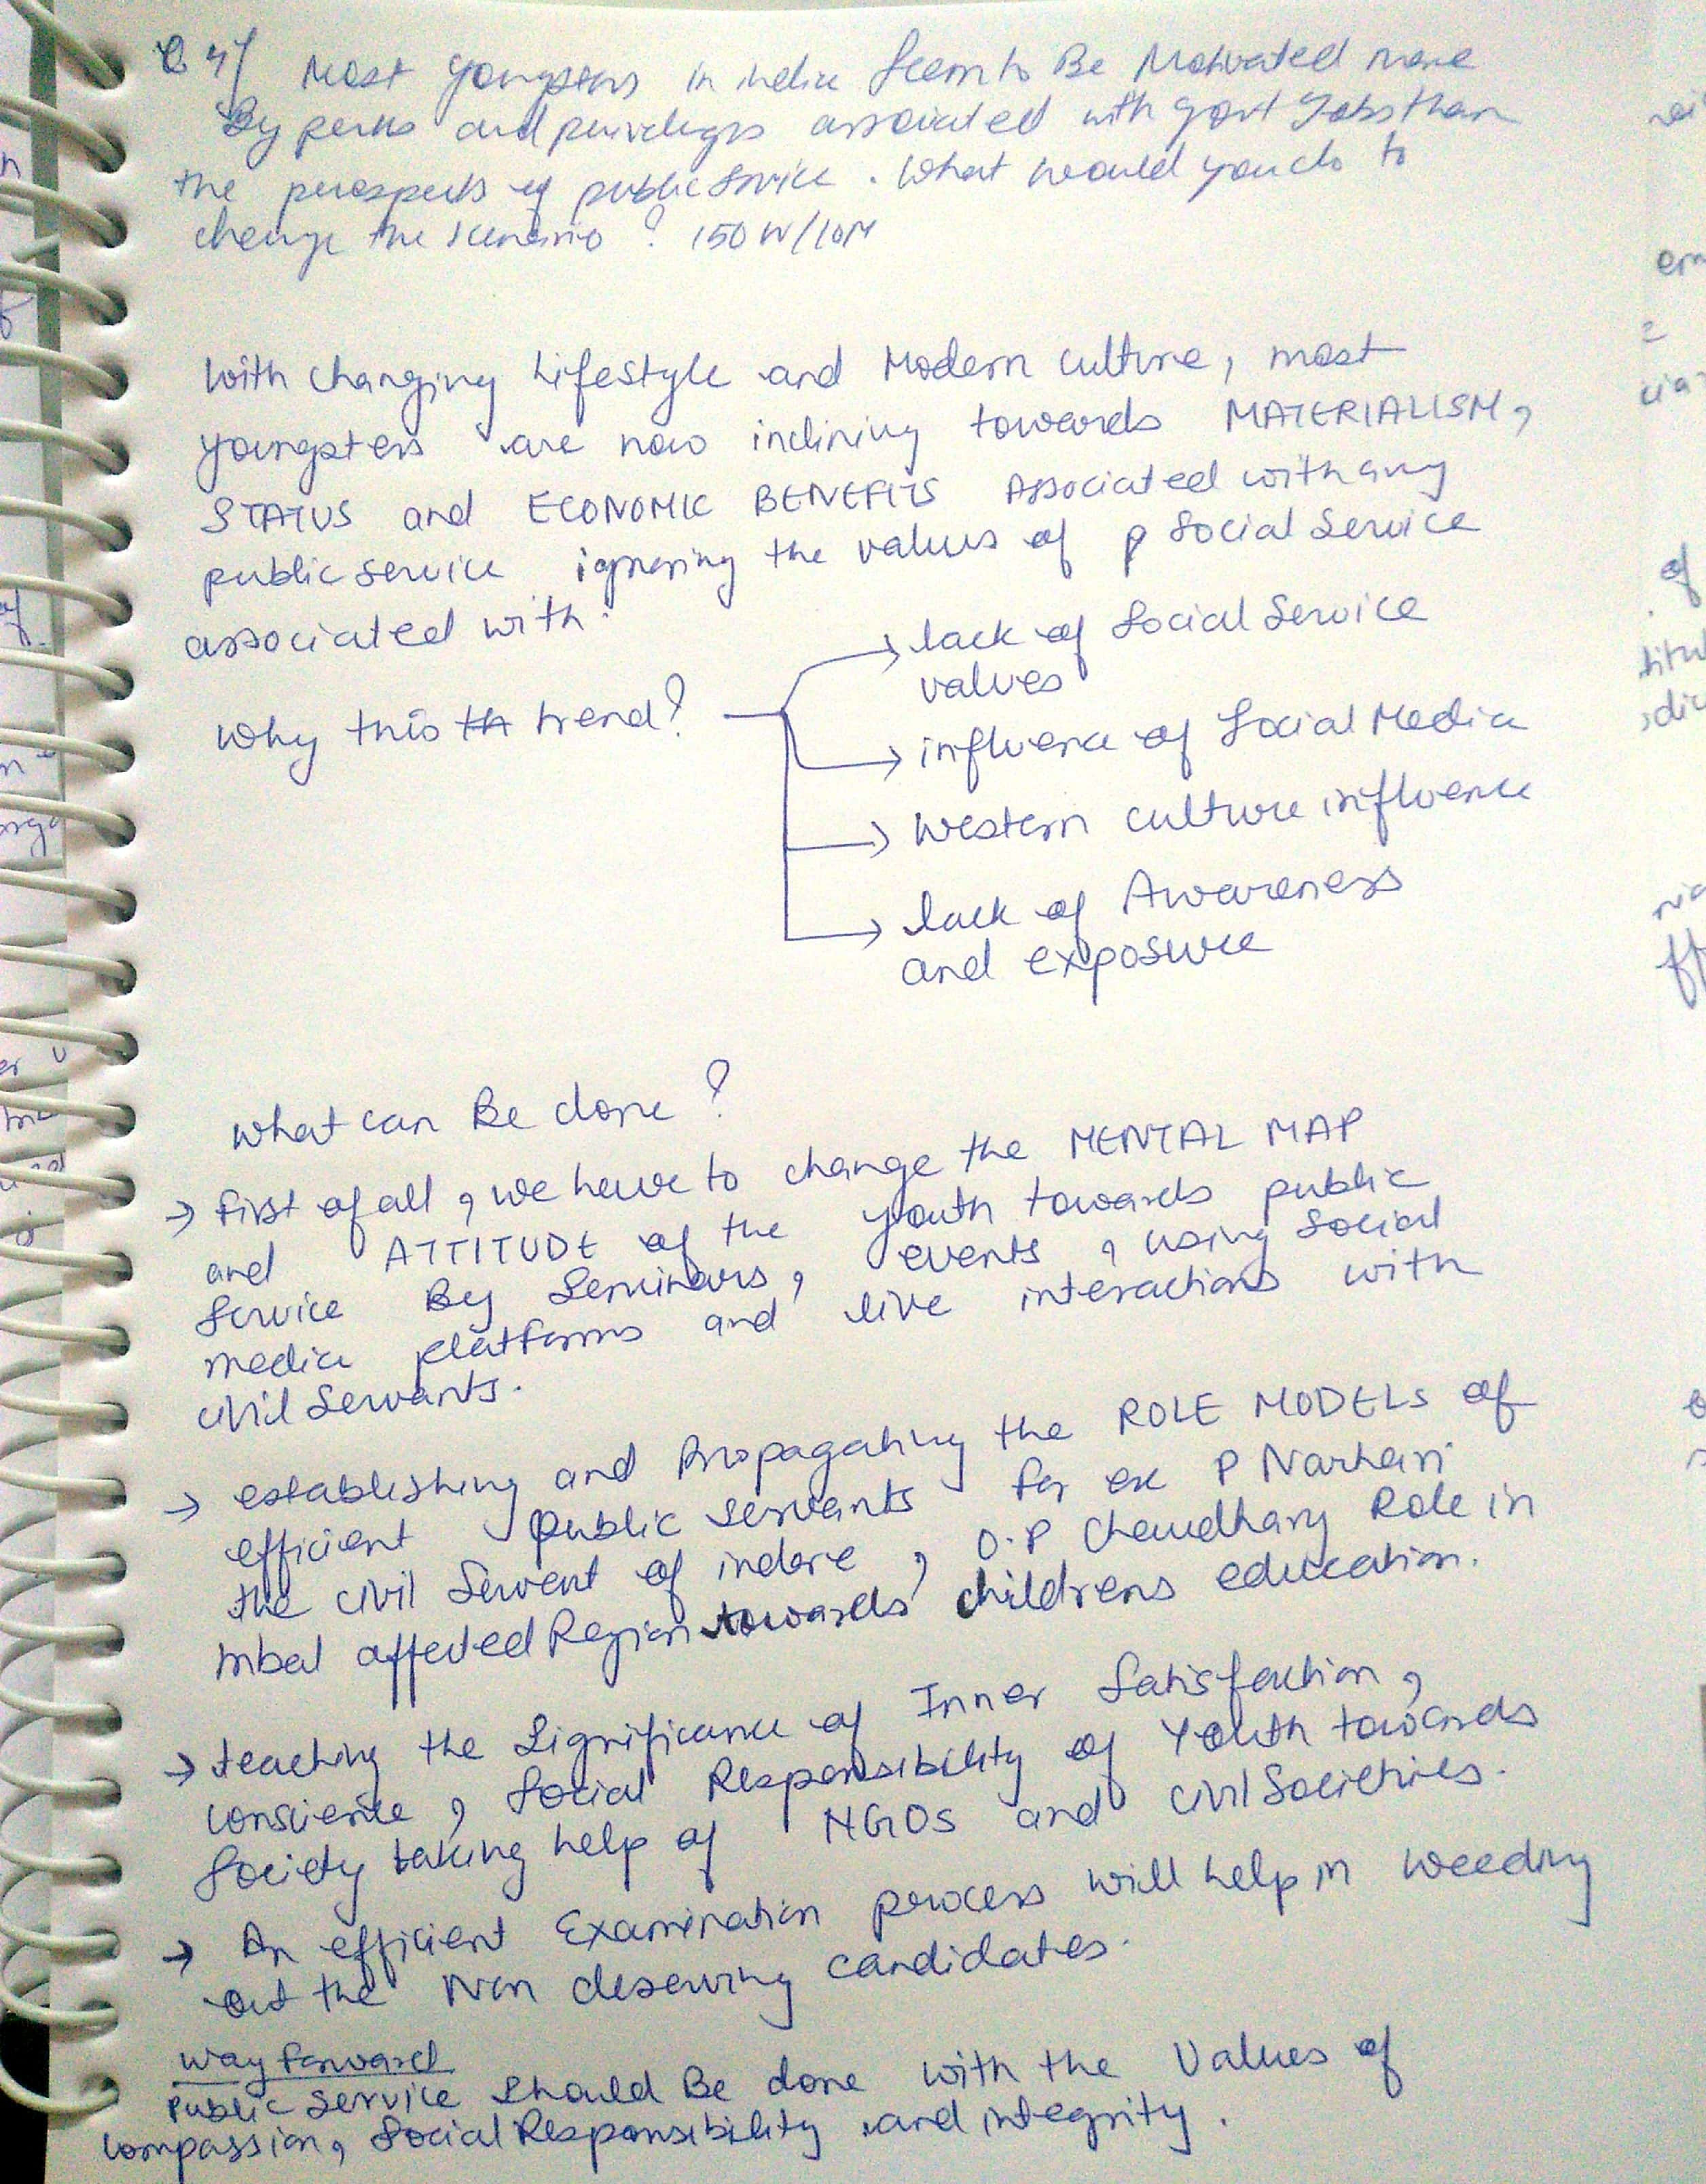 Q 4/ Most youngsters in india seem to Be Motivated more
By perks and priviledges associated with govt Jobs than
the perospects of public service. What would you do to
change the scenario? 150 W/10M
With changing Lifestyle and Modern culture, most
youngsters are now inclining towards MATERIALISM,
STATUS and ECONOMIC BENEFITS Associated with any
public service ignoring the values of p Social Service
associated with.
Why this th trend?
→ lack of Social Service
values
→ influence of Social Media
→ Western culture influence
→ lack of Awareness
and exposure
What can Be done?
→ first of all, we have to change the MENTAL MAP
and ATTITUDE of the youth towards public
Service By Seminars, events, using Social
media platforms and live interactions with
civil Servants.
→ establishing and Propagating the ROLE MODELS of
efficient public servants for ex P Narhari
the civil Servent of indore, O.P Chaudhary Role in
tribal affected Region towards childrens education.
→ teaching the Significance of Inner Satisfaction,
conscience, Social Responsibility of Youth towards
Society taking help of NGOs and civil Societies.
→ An efficient Examination process will help in weeding
out the Non deserving candidates.
Way forward
Public Service should Be done with the Values of
compassion, Social Responsibility and integrity.